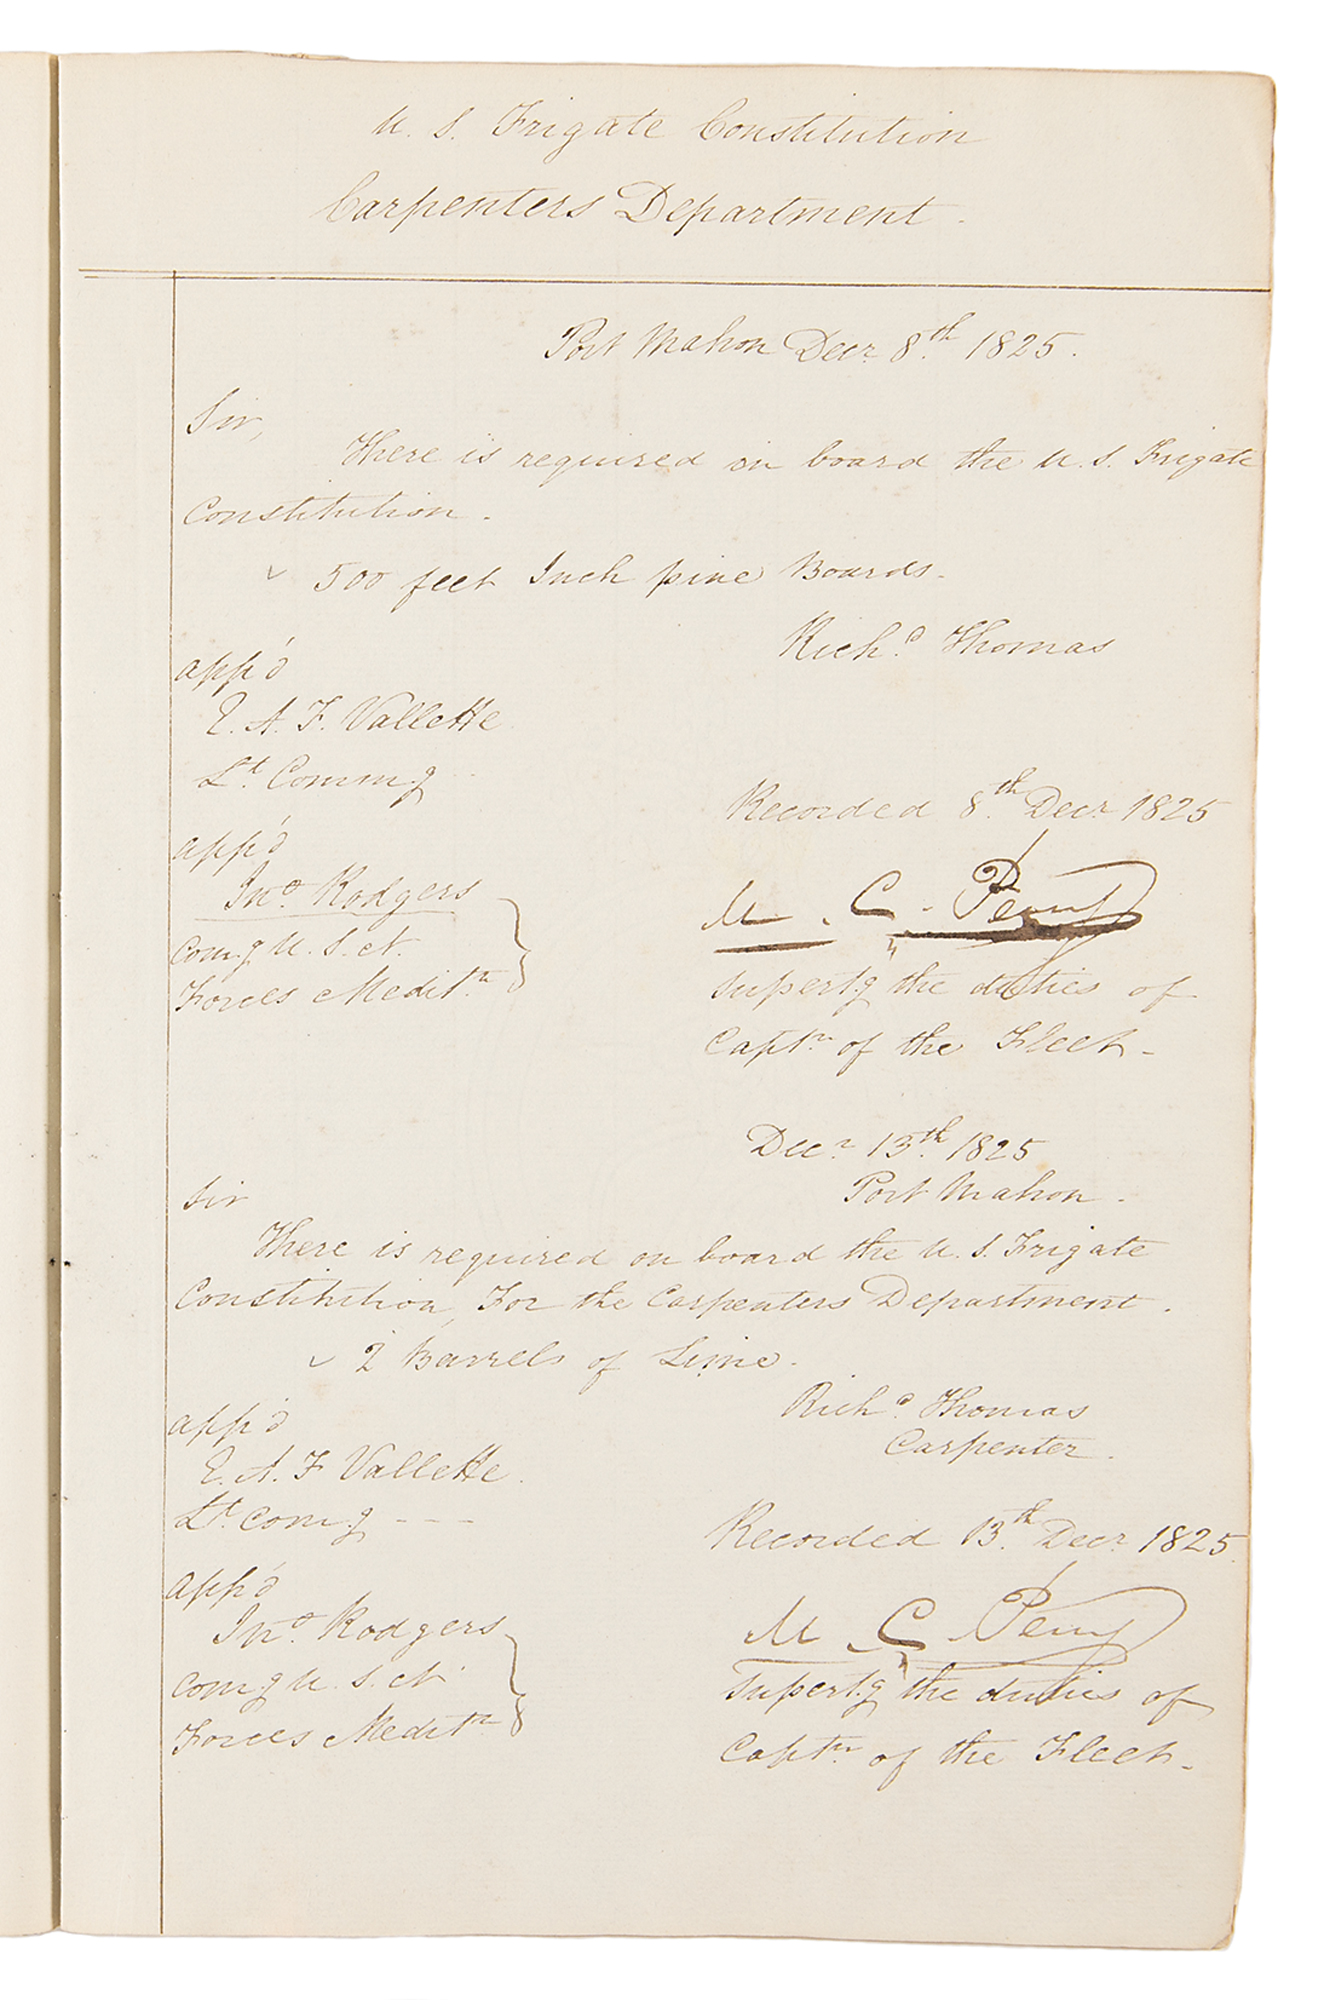 U. S. Frigate Constitution
Carpenters Department.
Port Mahon Decr. 8th. 1825.
Sir,
There is required on board the U. S. Frigate
Constitution.
500 feet Inch pine Boards.
Richd. Thomas
app'd
E. A. F. Vallette
Lt. Comm.g
Recorded 8th. Decr. 1825
app'd
Jno. Rodgers
Com.g U. S. N.
Forces Meditn.
M. C. Perry
Supert.g the duties of
Captn. of the Fleet-
Decr. 13th. 1825
Port Mahon.
Sir
There is required on board the U. S. Frigate
Constitution, For the Carpenters Department.
2 Barrels of Lime.
Richd. Thomas
Carpenter.
app'd
E. A. F Vallette.
Lt. Com.g - - -
Recorded 13th. Decr. 1825.
app'd
Jno. Rodgers
Com.g U. S. N.
Forces Meditn.
M C Perry
Supert.g the duties of
Captn. of the Fleet-